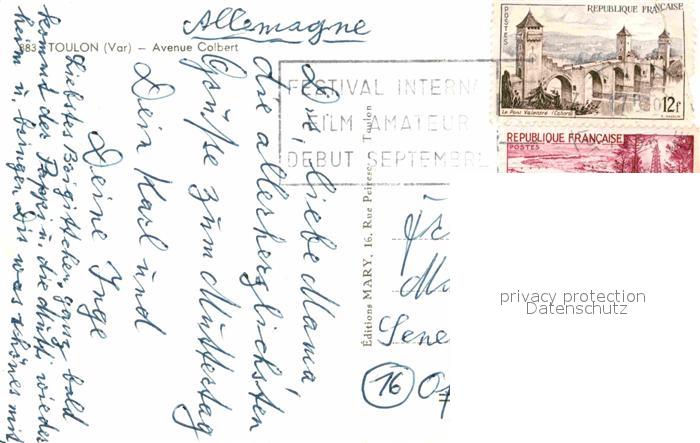 Allemagne
883. TOULON (Var) — Avenue Colbert
Dir, liebe Mama
die allerherzlichsten
Grüße zum Muttertag
Dein Karl und
Deine Inge
Liebstes Brigittchen, ganz bald
kommt der Pappi u. die Mutti wieder
heim u. bringen Dir was schönes mit
FESTIVAL INTERNA
FILM AMATEUR
DEBUT SEPTEMBRE
POSTES
REPUBLIQUE FRANÇAISE
Le Pont Valentré (Cahors)
12f
REPUBLIQUE FRANÇAISE
POSTES
Éditions MARY, 16, Rue Peiresc Toulon
Fr
Sene
16
privacy protection
Datenschutz